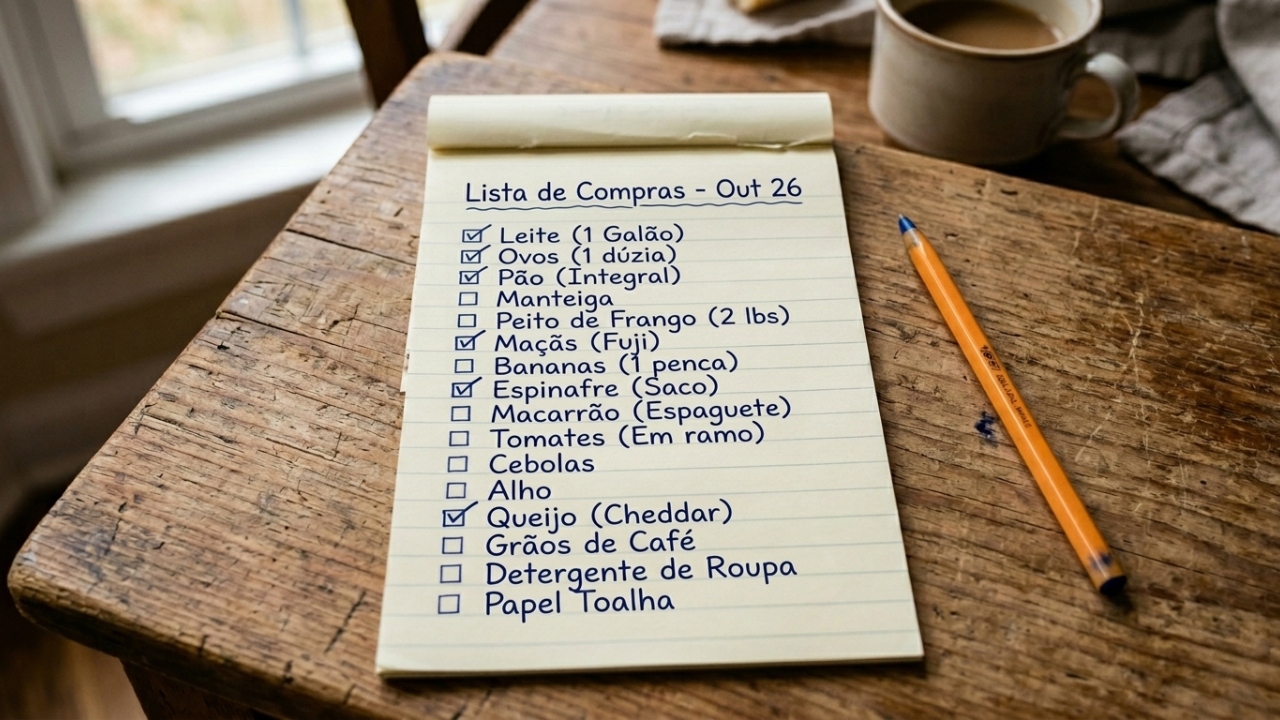 Lista de Compras - Out 26
☑ Leite (1 Galão)
☑ Ovos (1 dúzia)
☑ Pão (Integral)
☐ Manteiga
☐ Peito de Frango (2 lbs)
☑ Maçãs (Fuji)
☐ Bananas (1 penca)
☑ Espinafre (Saco)
☐ Macarrão (Espaguete)
☐ Tomates (Em ramo)
☐ Cebolas
☐ Alho
☑ Queijo (Cheddar)
☐ Grãos de Café
☐ Detergente de Roupa
☐ Papel Toalha